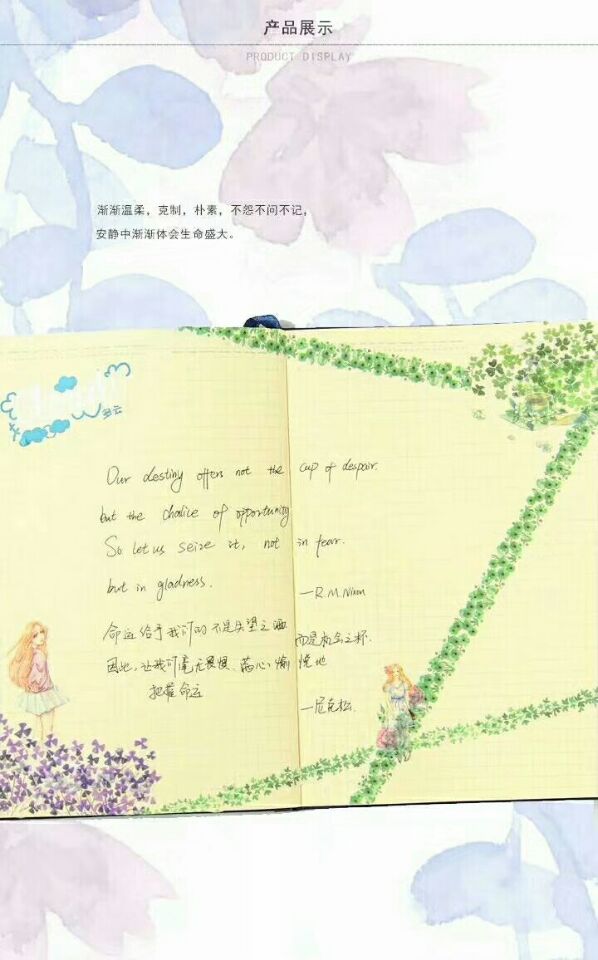 产品展示
PRODUCT DISPLAY
渐渐温柔，克制，朴素，不怨不问不记，
安静中渐渐体会生命盛大。
多云
Our destiny offers not the cup of despair.
but the chalice of opportunity
So let us seize it, not in fear.
but in gladness.
—R.M.Nixon
命运给予我们的不是失望之酒 而是机会之杯.
因此,让我们毫无畏惧、满心愉悦地
把握命运
—尼克松.